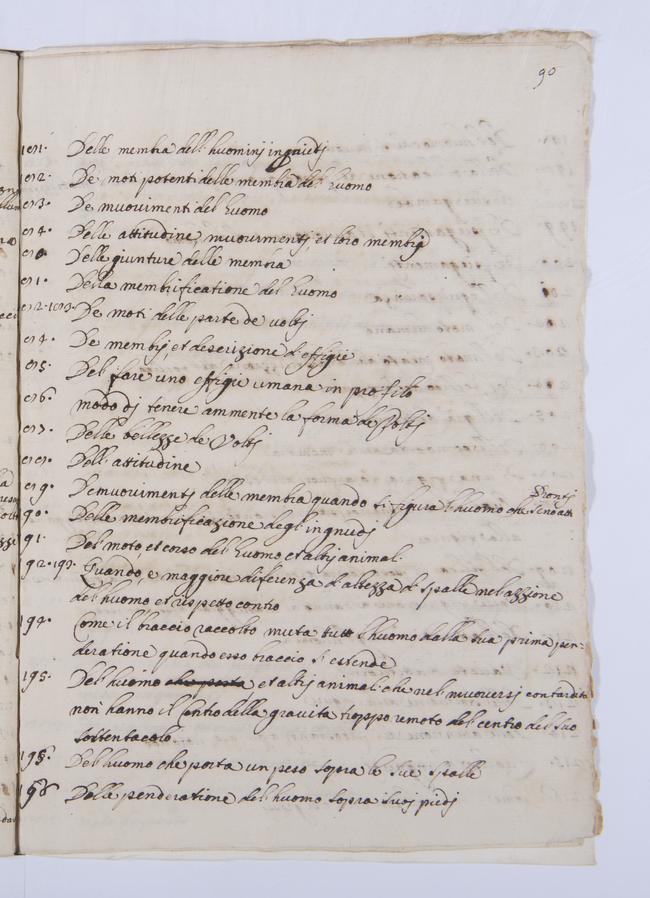 90
Delle membra dell'huominj ingnudj
De moti potenti delle membra del huomo
De muovimenti del huomo
Delle attitudine, muovimentj et loro membrj
Delle giunture delle membra
Della membrificatione del huomo
De moti delle parte de voltj
De membrj et descrizione d'effigie
Del fare uno effigie umana in profilo
modo dj tenere ammente la forma de voltj
Delle bellezze de voltj
Dell'attitudine
De muovimentj delle membra quando si figura l'huomo che
90. Delle membrificazione degli ingnudj
91. Del moto et corso del huomo et altrj animali
92.193. Quando e maggiore diferenza d'altezza d spalle nel azzione
del huomo et rispetto contro
194. Come il braccio raccolto muta tutto l'huomo dalla sua prima pon-
deratione quando esso braccio si estende
195. Del huomo che porta et altrj animali che nel muoversj con tardità
non hanno il centro della gravita troppo remoto del centro del suo
sostentacolo
Del huomo che porta un peso sopra le sue spalle
Della ponderatione del huomo sopra i suoj piedj